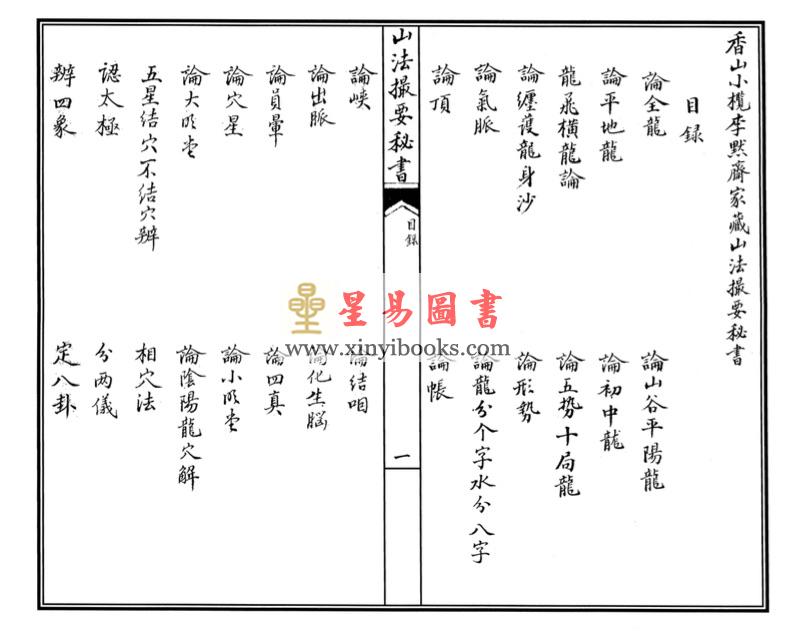 香山小欖李默齋家藏山法撮要秘書
目録
論全龍
論山谷平陽龍
論平地龍
論初中龍
龍飛橫龍論
論五势十局龍
論纏護龍身沙
論形势
論氣脈
論龍分个字水分八字
論頂
論帳
山法撮要秘書
目録
一
論峽
論結咽
論出脈
論化生腦
論員暈
論四真
論穴星
論小明堂
論大明堂
論陰陽龍穴解
五星結穴不結穴辨
相穴法
認太極
分两儀
辨四象
定八卦
星易圖書
www.xinyibooks.com